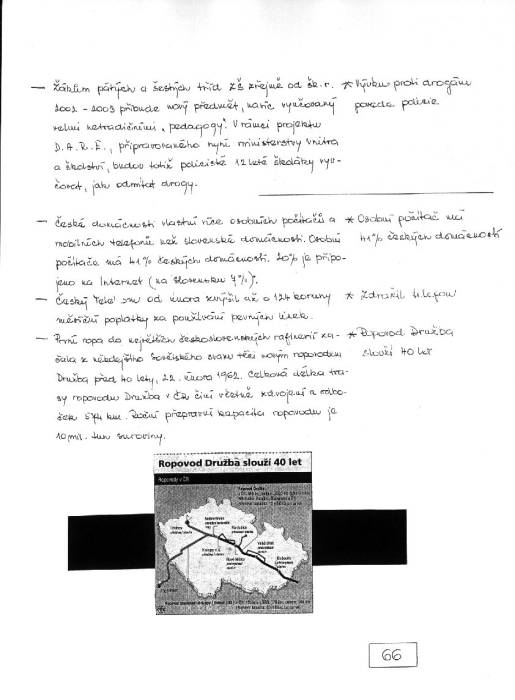 — Žákům pátých a šestých tříd ZŠ zřejmě od šk. r.
2002 - 2003 přibude nový předmět, navíc vyučovaný
velmi netradičními „pedagogy". V rámci projektu
D.A.R.E., připravovaného nyní ministerstvy vnitra
a školství, budou totiž policisté 12 leté školáky vyu-
čovat, jak odmítat drogy.
* Výuku proti drogám
povede policie
— Česká domácnosti vlastní více osobních počítačů a
mobilních telefonů než slovenské domácnosti. Osobní
počítače má 41% českých domácností. 20% je připo-
jeno na Internet (na Slovensku 7%).
* Osobní počítač má
41% českých domácností
— Český Telecom od února zvýšil až o 124 koruny
měsíční poplatky za používání pevných linek.
* Zdražil telefon
— První ropa do největších československých rafinerií za-
čala z někdejšího Sovětského svazu téci novým ropovodem
Družba před 40 lety, 22. února 1962. Celková délka tra-
sy ropovodu Družba v ČR činí včetně zdvojení a odbo-
ček 574 km. Roční přepravní kapacita ropovodu je
10 mil. tun suroviny.
* Ropovod Družba
slouží 40 let
Ropovod Družba slouží 40 let
Ropovody v ČR
66